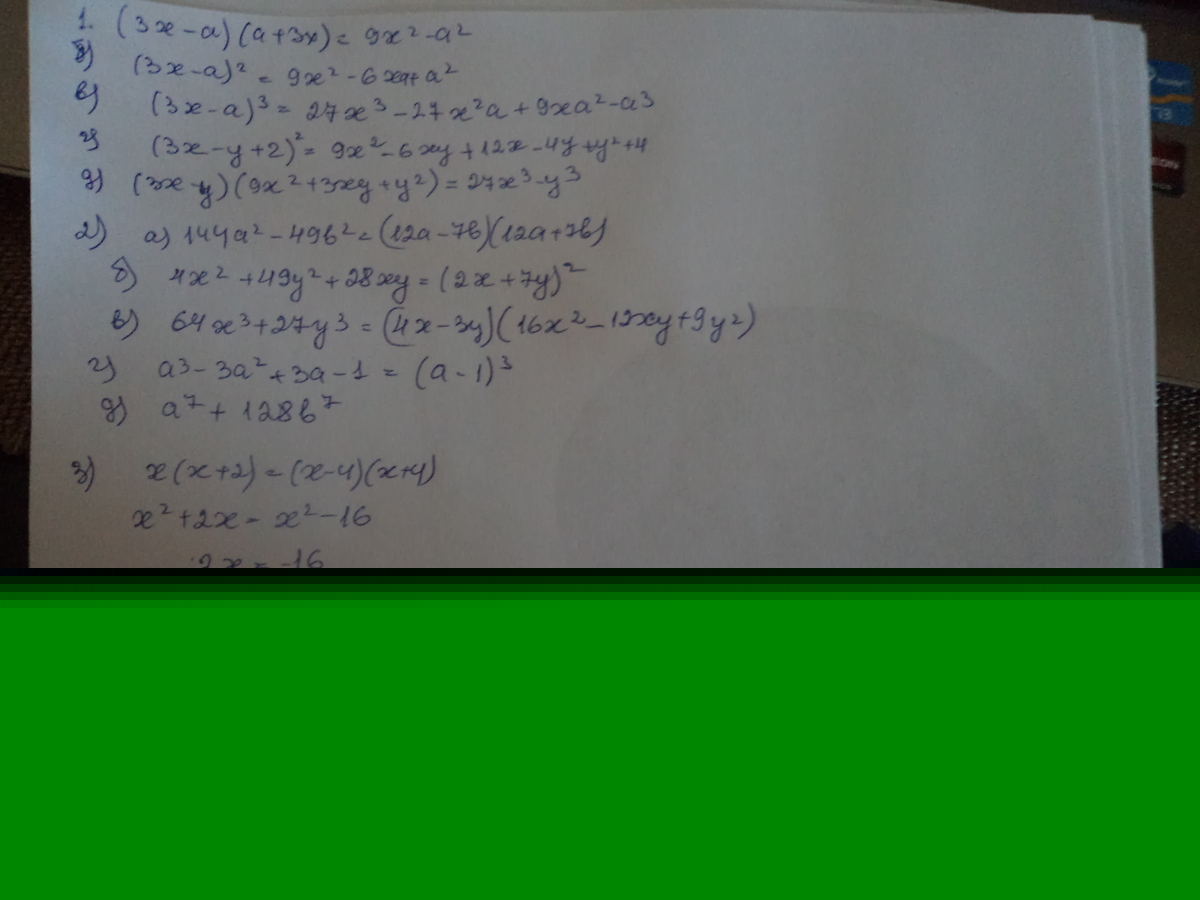 1. (3x-a)(a+3x) = 9x²-a²
б) (3x-a)² = 9x²-6xa+a²
в) (3x-a)³ = 27x³-27x²a+9xa²-a³
г) (3x-y+2)² = 9x²-6xy+12x-4y+y²+4
д) (3x-y)(9x²+3xy+y²) = 27x³-y³
2) а) 144a²-49b² = (12a-7b)(12a+7b)
б) 4x²+49y²+28xy = (2x+7y)²
в) 64x³+27y³ = (4x-3y)(16x²-12xy+9y²)
г) a³-3a²+3a-1 = (a-1)³
д) a⁷+128b⁷
3) x(x+2) = (x-4)(x+4)
x²+2x = x²-16
2x = -16